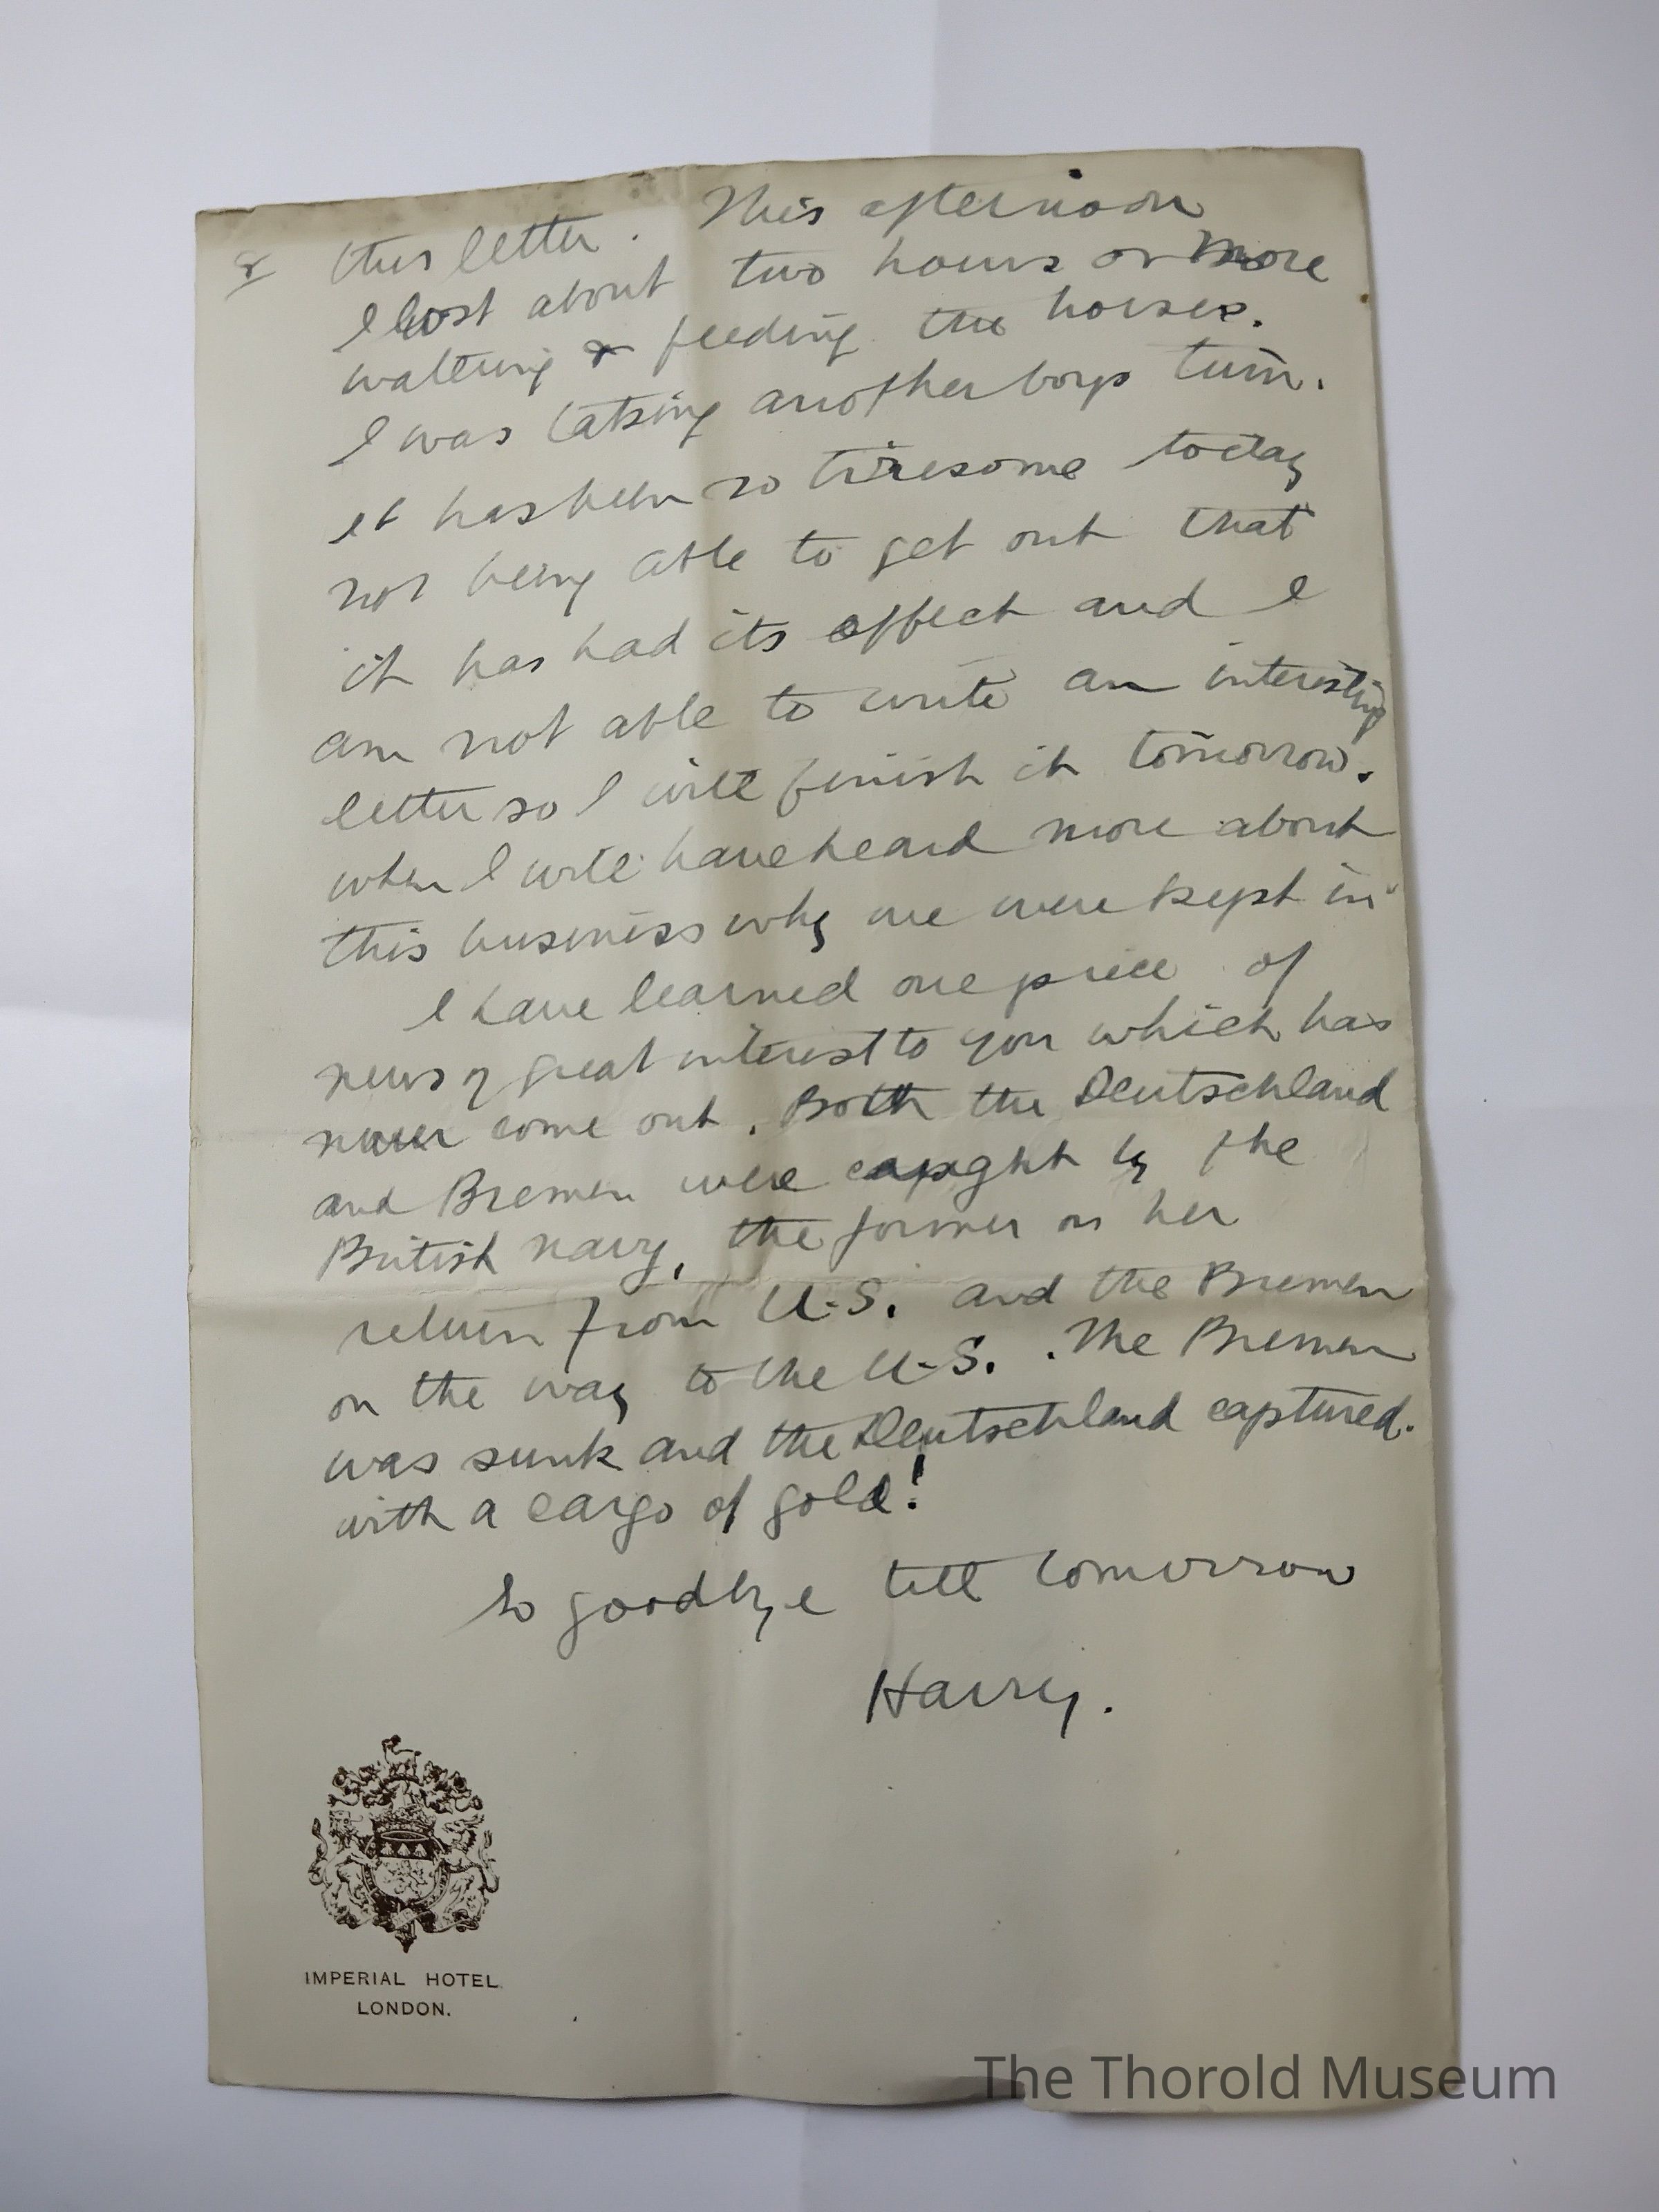 & this letter. This afternoon
I lost about two hours or more
watering & feeding the horses.
I was taking another boys turn.
it has been so tiresome today
not being able to get out that
it has had its effect and I
am not able to write an interesting
letter so I will finish it tomorrow.
when I will have heard more about
this business why we were kept in
I have learned one piece of
news of great interest to you which has
never come out. Both the Deutschland
and Bremen were caught by the
British navy, the former on her
return from U.S. and the Bremen
on the way to the U.S. The Bremen
was sunk and the Deutschland captured.
with a cargo of gold!
So goodbye till tomorrow
Harry.
IMPERIAL HOTEL
LONDON.
The Thorold Museum